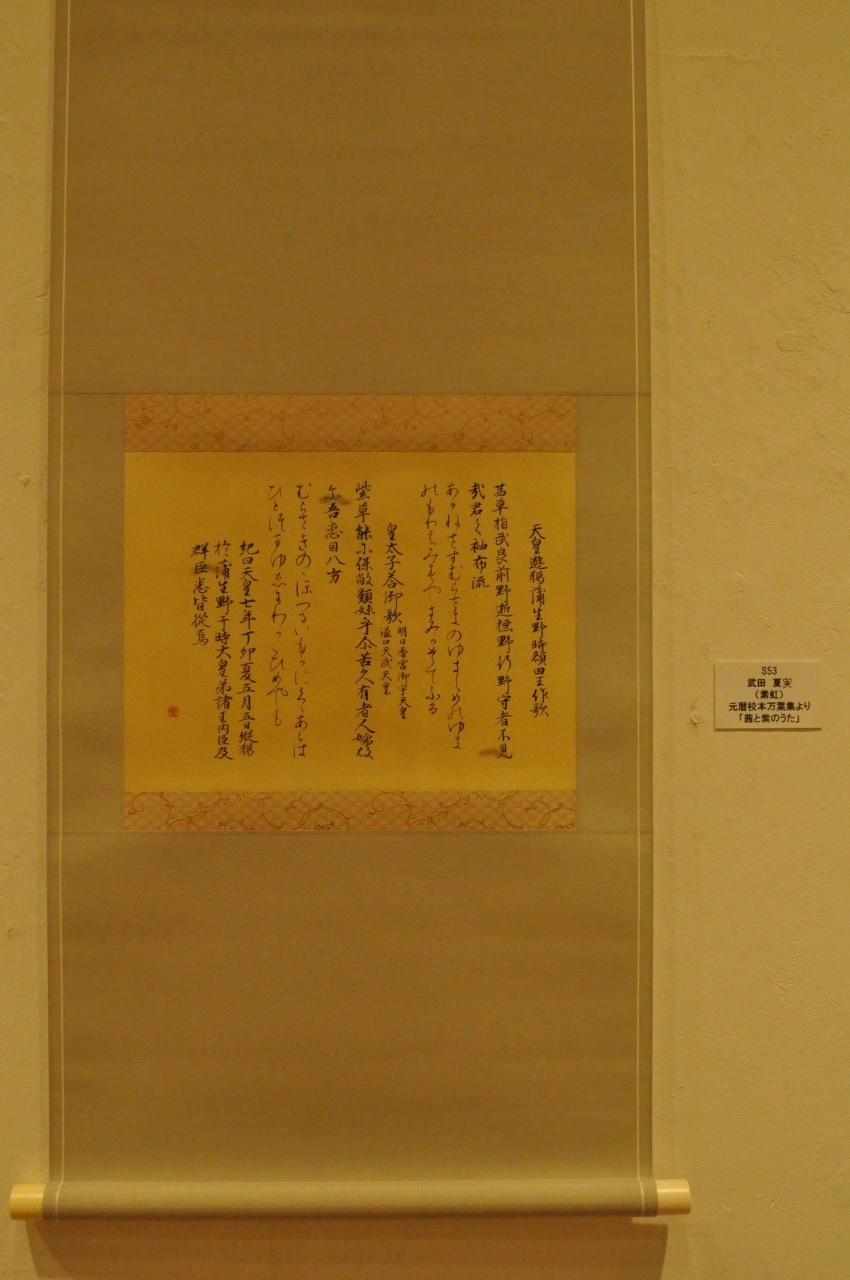 天皇遊獦蒲生野時額田王作歌
茜草指武良前野逝標野行野守者不見
哉君之袖布流
あかねさすむらさきのゆきしめのゆき
のもりはみすや きみかそてふる
皇太子答御歌
明日香宮御宇天皇
謚曰天武天皇
紫草能尓保敝類妹乎尓苦久有者人嬬故
尓吾恋目八方
むらさきのにほへるいもをにくくあらは
ひとつまゆゑにわかこひめやも
紀曰天皇七年丁卯夏五月五日縦獦
於蒲生野于時大皇弟諸王内臣及
群臣悉皆從焉
S53
武田 夏実
(素虹)
元暦校本万葉集より
「茜と紫のうた」